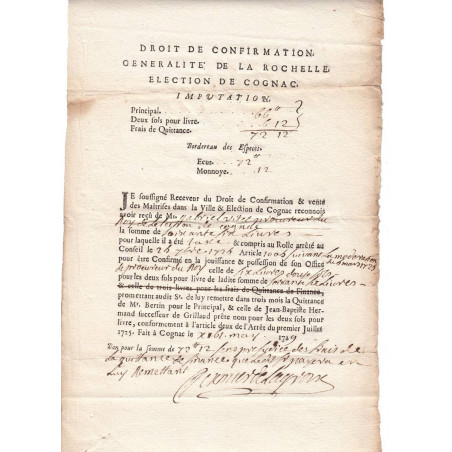 DROIT DE CONFIRMATION,
GENERALITÉ DE LA ROCHELLE,
ELECTION DE COGNAC,
IMPUTATION,
Principal, 66
Deux sols pour livre. 6 12
Frais de Quittance. 72 12
Bordereau des Especes.
Ecus 72
Monnoye. 12
JE soussigné Receveur du Droit de Confirmation & vente
des Maîtrises dans la Ville & Election de Cognac reconnois
avoir reçû de Mr. gabriel procureur du
Roy de lelection de cognac
la somme de soixante six Livres
pour laquelle il a été taxé & compris au Rolle arrêté au
Conseil le 24 1726 Article 1006
pour être Confirmé en la joüissance & possession de son Office
de procureur du Roy & celle de six Livres douze sols
pour les deux sols pour livre de ladite somme de soixante six Livres
& celle de trois livres pour la frais de Quittance de Finance,
promettant audit Sr. de luy remettre dans trois mois la Quittance
de Mr. Bertin pour le Principal, & celle de Jean-Baptiste Her-
mand successeur de Grillaud prêté nom pour les deux sols pour
livre, conformément à l'article deux de l'Arrêt du premier Juillet
1725. Fait à Cognac le may 1729
Bon pour la somme de 72 12 sans prejudice des frais de
la quittance de finance que le payera en
Luy Remettant